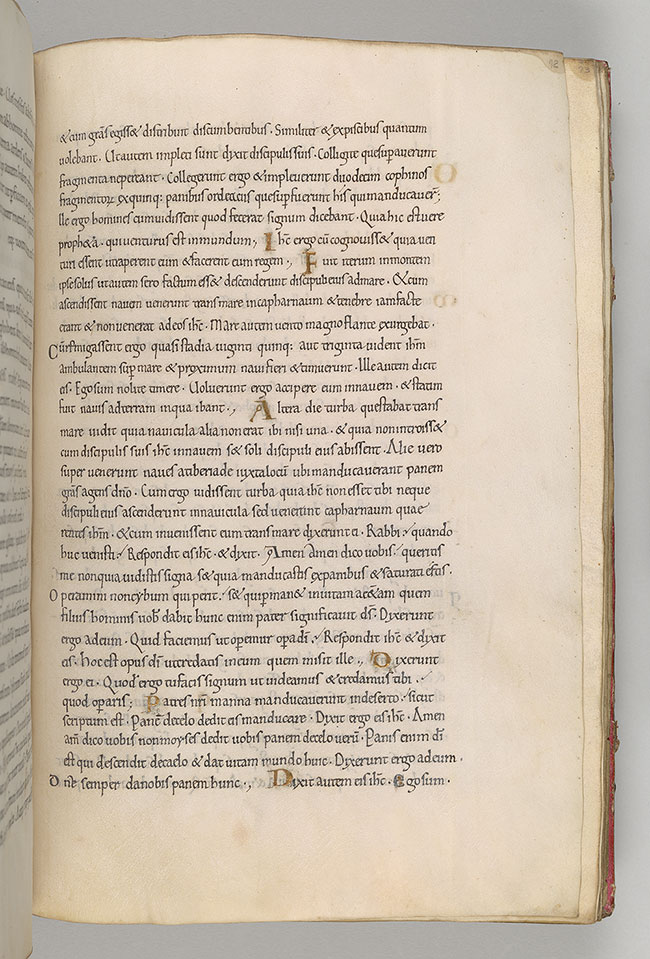 92 93
& cum gr̄as egiss& distribuit discumbentibus · Similiter & expiscibus quantum
uolebant · Ut autem impleti sunt dixit discipulis suis · Colligite que supauerunt
fragmenta nepereant · Collegerunt ergo & impleuerunt duodecim cophinos
fragmentoꝝ ex quinq; panibus ordeaciis que supfuerunt his qui manducauer̄;
lle ergo homines cum uidissent quod fecerat signum dicebant · Quia hic est uere
proph&a · qui uenturus est in mundum ., Ihc̄ ergo cū cognouiss& quia uen
turi essent ut raperent eum & facerent eum regem ., Fuit iterum inmontem
ipse solus ut autem sero factum ess& descenderunt discipuli eius admare · & cum
ascendissent nauem uenerunt trans mare incapharnaum & tenebre iam facte
erant & non uenerat ad eos ihc̄ · Mare autem uento magno flante exurgebat ·
Cū remigassent ergo quasi stadia uiginti quinq; aut triginta uident ihm̄
ambulantem sup mare & proximum naui fieri & timuerunt · Ille autem dicit
eis · Ego sum nolite timere · Uoluerunt ergo accipere eum innauem · & statim
fuit nauis adterram inqua ibant ., Altera die turba que stabat trans
mare uidit quia nauicula alia non erat ibi nisi una · & quia non introiss&
cum discipulis suis ihc̄ innauem s& soli discipuli eius abissent · Alie uero
super uenerunt naues atiberiade iuxta locū ubi manducauerant panem
gr̄as agentes dn̄o · Cum ergo uidissent turba quia ihc̄ non esset ibi neque
discipuli eius ascenderunt innauicula sed uenerunt capharnaum quae
rentes ihm̄ · & cum inuenissent eum trans mare dixerunt ei · Rabbi · quando
huc uenisti · Respondit eis ihc̄ & dixit · Amen Amen dico uobis · queritis
me non quia uidistis signa s& quia manducastis ex panibus & saturati estis ·
Operamini non cybum qui perit · s& qui pman& inuitam aetnam quem
filius hominis uob̄ dabit hunc enim pater significauit ds̄ · Dixerunt
ergo adeum · Quid faciemus ut operemur opa dī · Respondit ihc̄ & dixit
eis · Hoc est opus dī ut credatis ineum quem misit ille ., Dixerunt
ergo ei · Quod ergo tu facis signum ut uideamus & credamus tibi ·
quod operaris; Patres nr̄i manna manducauerunt indeserto · sicut
scriptum est · Panē decelo dedit eis manducare · Dixit ergo eis ihc̄ · Amen
am̄ dico uobis non moyses dedit uobis panem decelo uerū · Panis enim dī
est qui descendit decaelo & dat uitam mundo hunc · Dixerunt ergo adeum ·
Dn̄e semper da nobis panem hunc ., Dixit autem eis ihc̄ · Ego sum ·